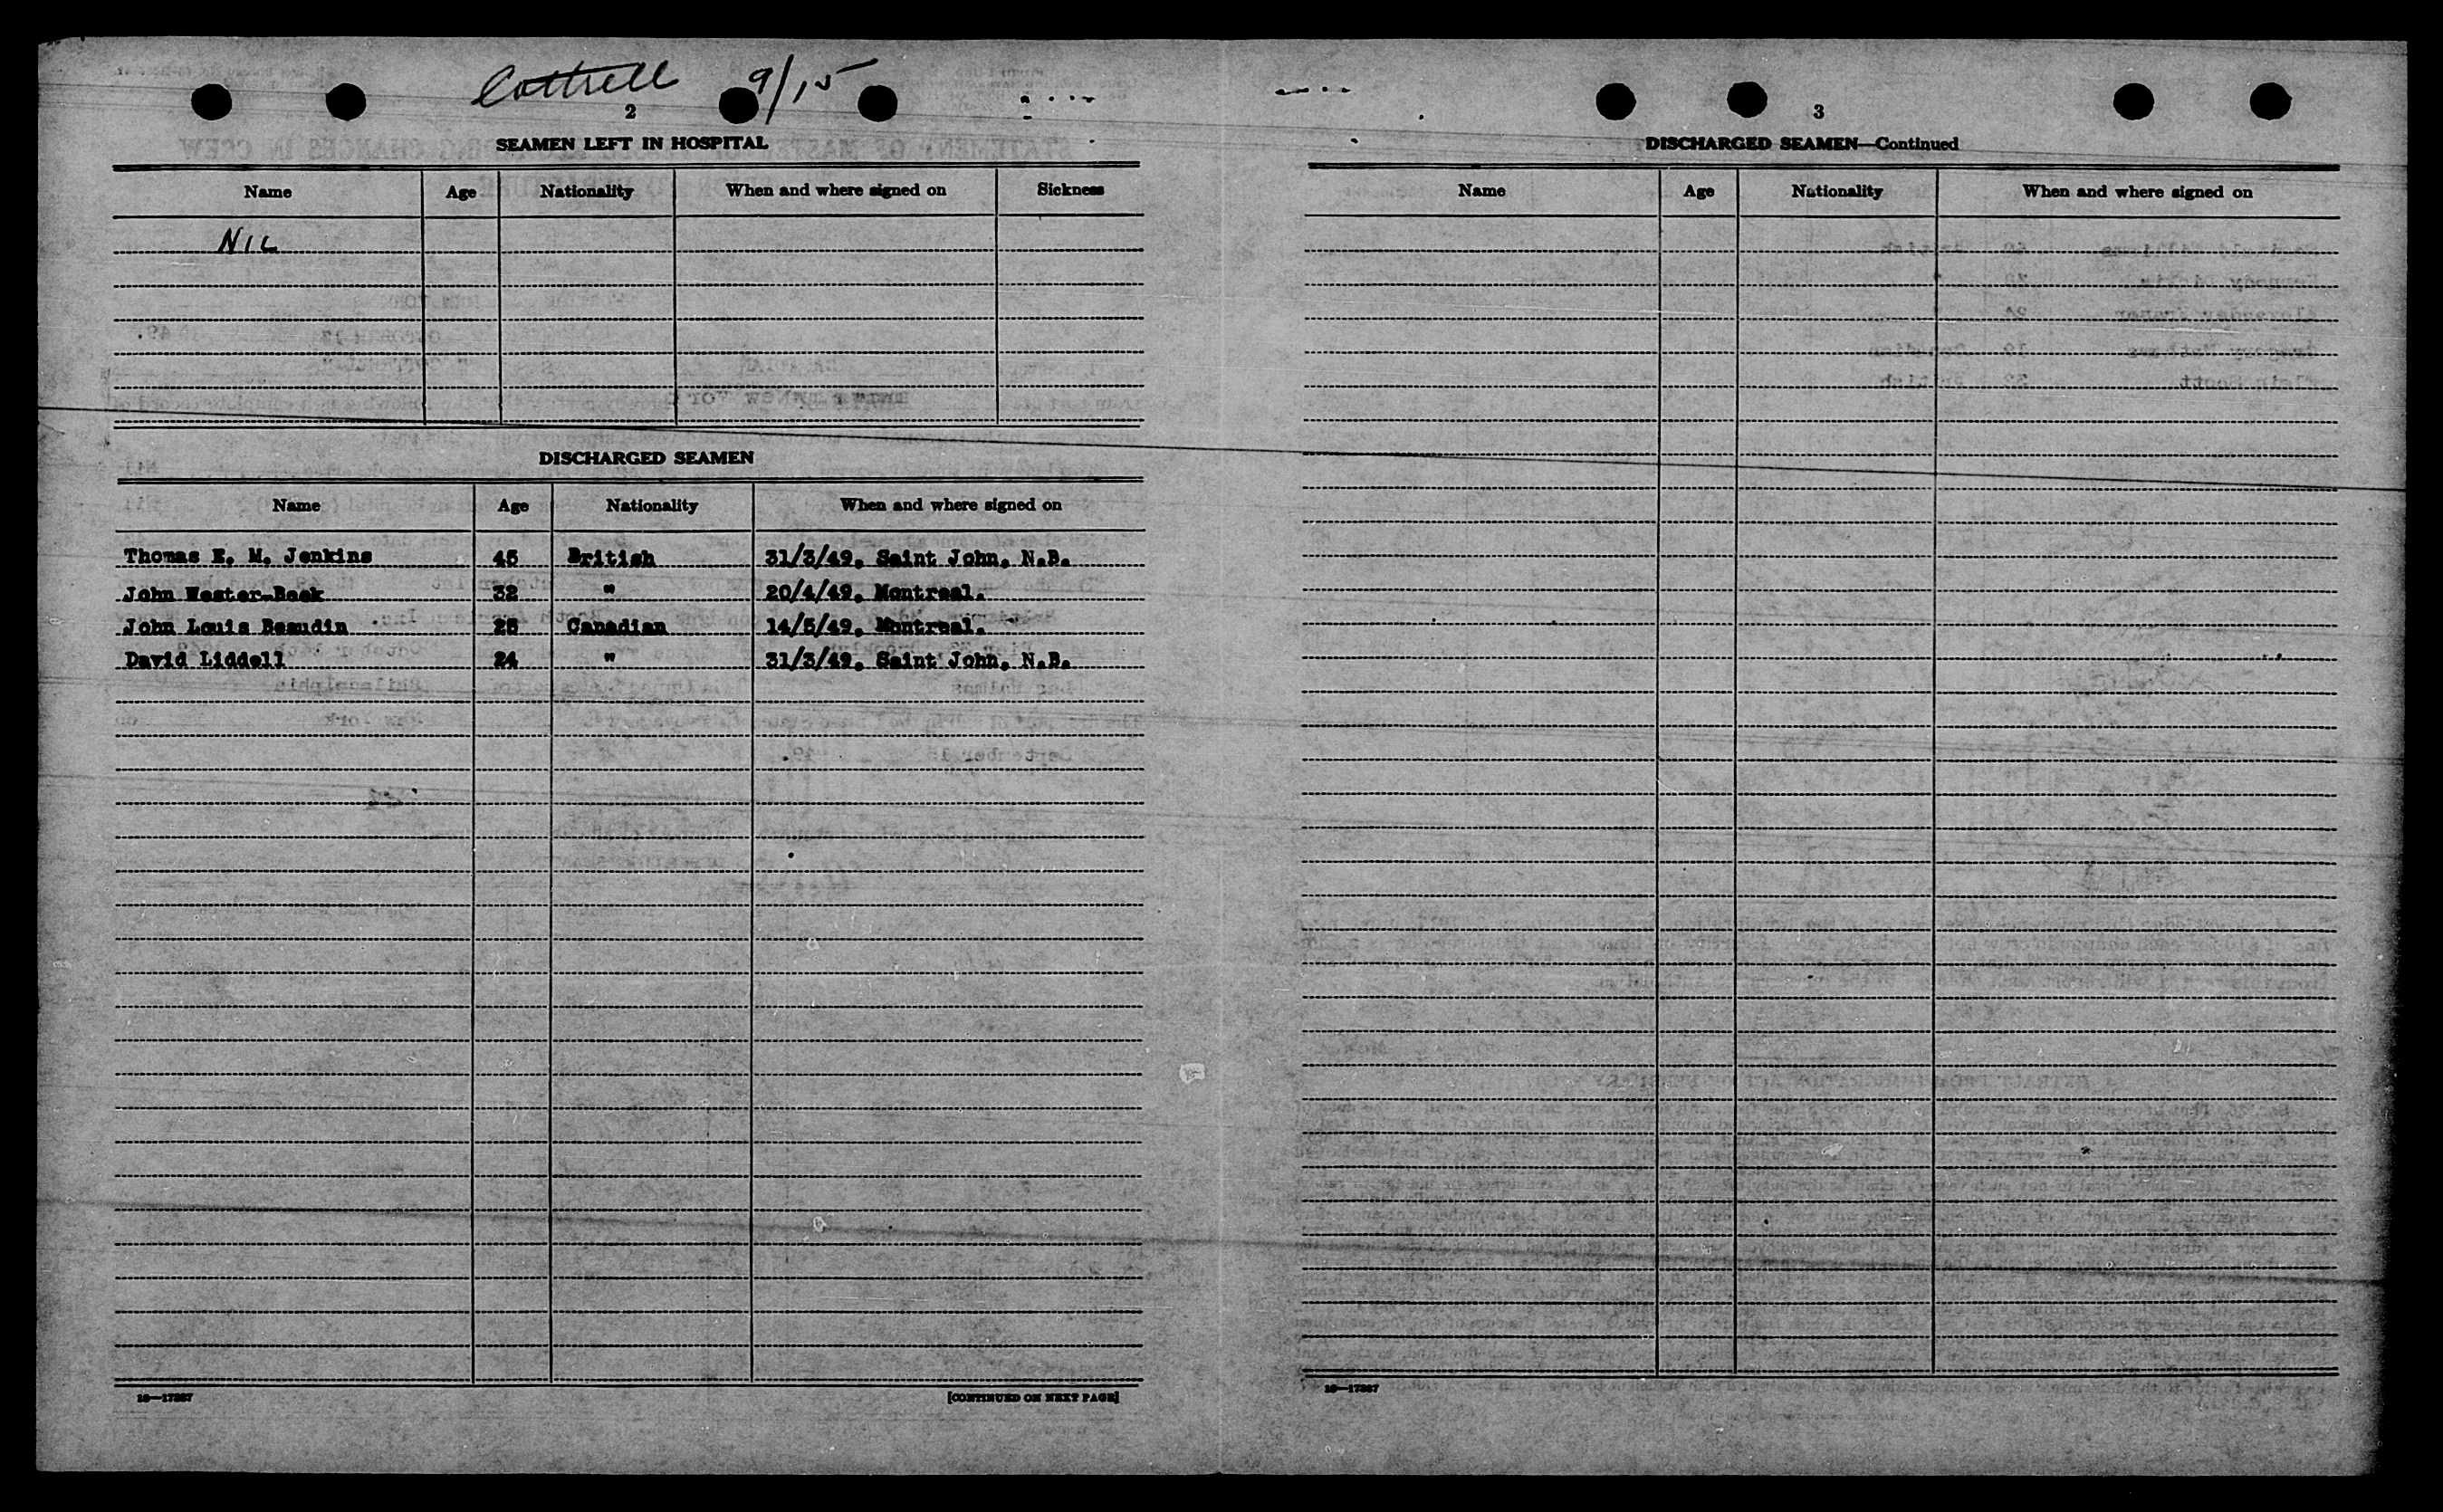 Cottrell 9/15
2
SEAMEN LEFT IN HOSPITAL
Name Age Nationality When and where signed on Sickness
NIL
DISCHARGED SEAMEN
Name Age Nationality When and where signed on
Thomas E. M. Jenkins 45 British 31/3/49, Saint John, N.B.
John Wester-Beek 32 " 20/4/49, Montreal.
John Louis Beaudin 25 Canadian 14/5/49, Montreal.
David Liddell 24 " 31/3/49, Saint John, N.B.
16—17287
[CONTINUED ON NEXT PAGE]
3
DISCHARGED SEAMEN—Continued
Name Age Nationality When and where signed on
16—17287